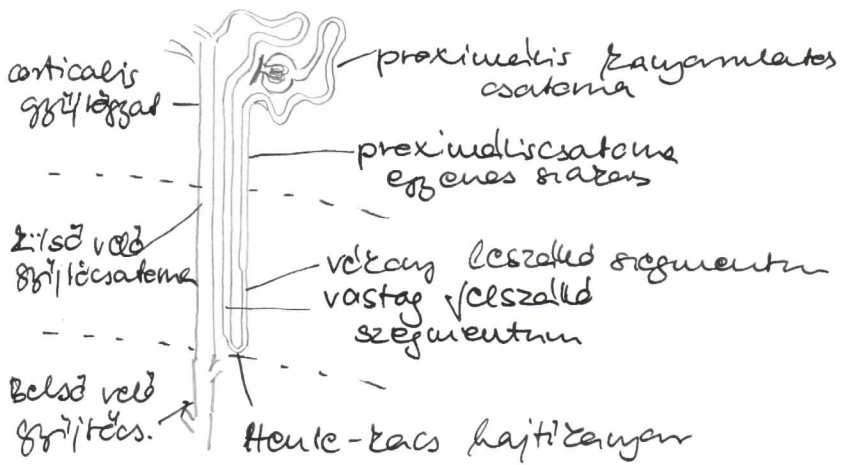 corticalis
gyűjtőgzat
proximális kanyarulatos
csatorna
proximáliscsatorna
egyenes szakasz
külső velő
gyűjtőcsatorna
vékony leszálló szegmentum
vastag felszálló
szegmentum
Belső velő
gyűjtőcs.
Henle-kacs hajtűkanyar